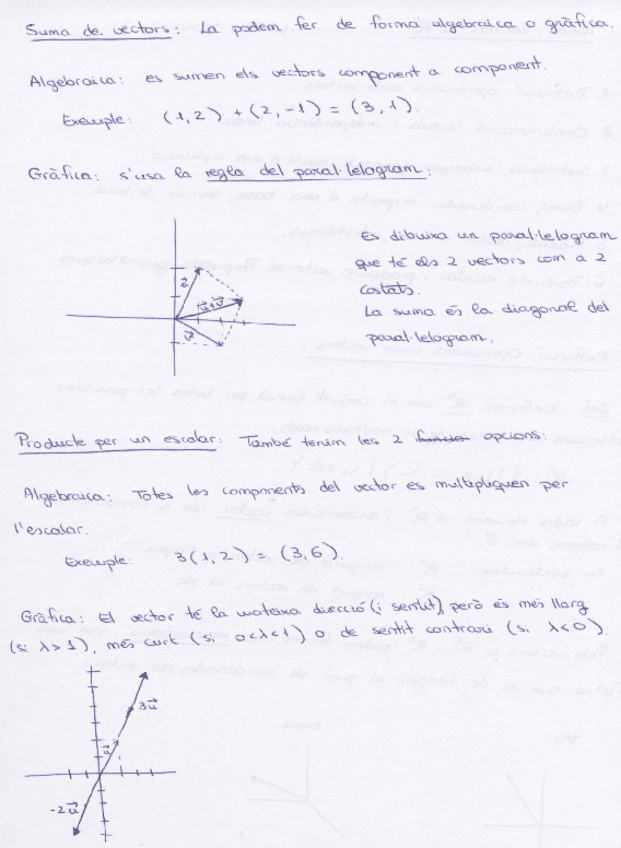 Suma de vectors: La podem fer de forma algebraica o gràfica.
Algebraica: es sumen els vectors component a component.
Exemple: (1,2) + (2,-1) = (3,1).
Gràfica: s'usa la regla del paral·lelogram:
Es dibuixa un paral·lelogram
que té els 2 vectors com a 2
costats.
La suma és la diagonal del
paral·lelogram.
u⃗
u⃗+v⃗
v⃗
Producte per un escalar: També tenim les 2 opcions:
Algebraica: Totes les components del vector es multipliquen per
l'escalar.
Exemple: 3(1,2) = (3,6).
Gràfica: El vector té la mateixa direcció (i sentit), però és més llarg
(si λ>1), més curt (si 0<λ<1) o de sentit contrari (si λ<0).
3u⃗
u⃗
-2u⃗